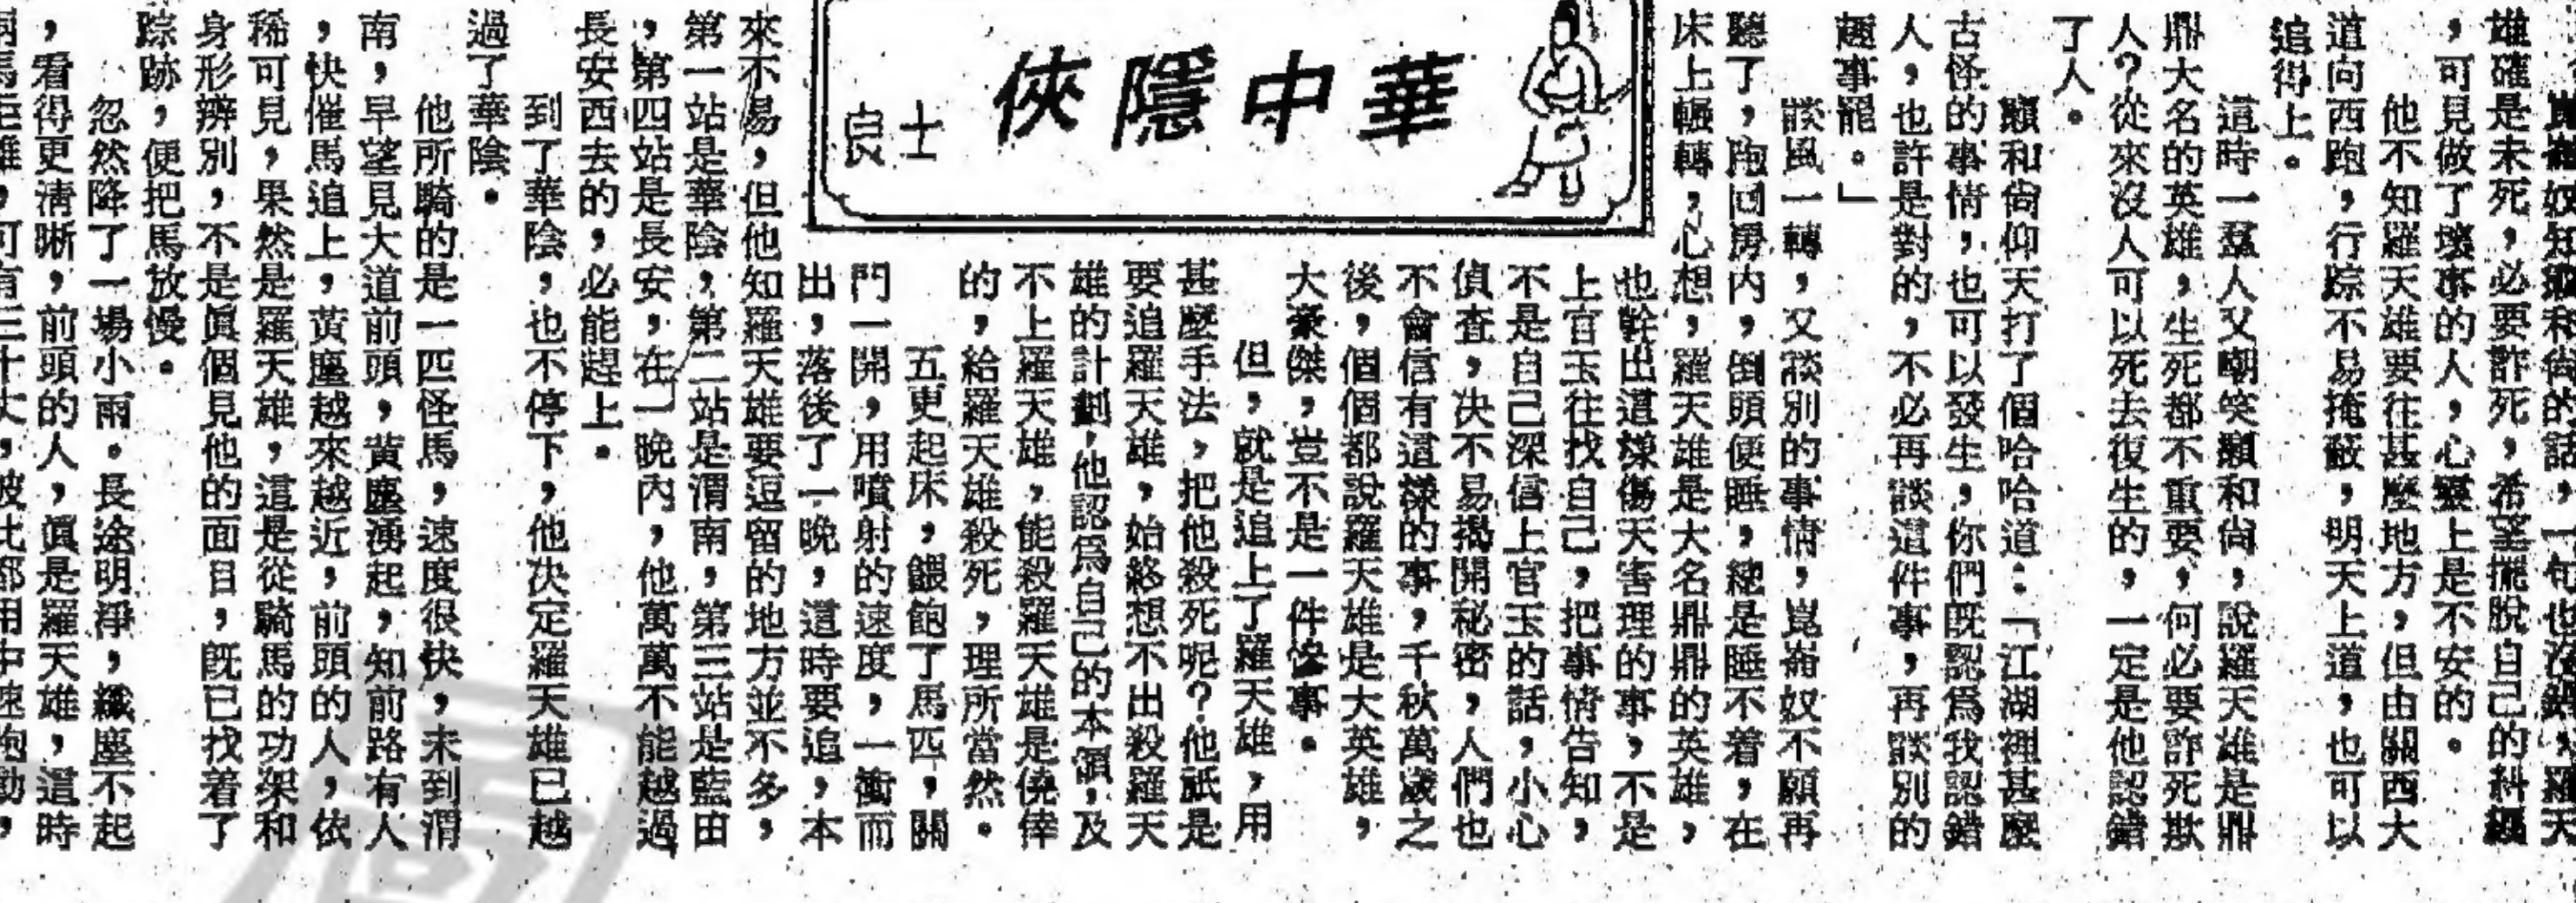 華中隱俠
士良
崑崙奴知癲和尙的話，一句也沒錯，羅天
雄確是未死，必要詐死，希望擺脫自己的糾纏
，可見做了壞事的人，心靈上是不安的。
他不知羅天雄要往甚麼地方，但由關西大
道向西跑，行踪不易掩蔽，明天上道，也可以
追得上。
這時一羣人又嘲笑癲和尙，說羅天雄是鼎
鼎大名的英雄，生死都不重要，何必要詐死欺
人？從來沒人可以死去復生的，一定是他認錯
了人。
癲和尙仰天打了個哈哈道：「江湖裡甚麼
古怪的事情，也可以發生，你們旣認爲我認錯
人，也許是對的，不必再談這件事，再談別的
趣事罷。」
談風一轉，又談別的事情，崑崙奴不願再
聽了，跑回房內，倒頭便睡，總是睡不着，在
床上輾轉，心想，羅天雄是大名鼎鼎的英雄，
也幹出這樣傷天害理的事，不是
上官玉往找自己，把事情告知，
不是自己深信上官玉的話，小心
偵查，決不易揭開秘密，人們也
不會信有這樣的事，千秋萬歲之
後，個個都說羅天雄是大英雄，
大豪傑，豈不是一件慘事。
但，就是追上了羅天雄，用
甚麼手法，把他殺死呢？他祇是
要追羅天雄，始終想不出殺羅天
雄的計劃，他認爲自己的本領，及
不上羅天雄，能殺羅天雄是僥倖
的，給羅天雄殺死，理所當然。
五更起床，餵飽了馬匹，關
門一開，用噴射的速度，一衝而
出，落後了一晚，這時要追，本
來不易，但他知羅天雄要逗留的地方並不多，
第一站是華陰，第二站是渭南，第三站是藍田
，第四站是長安，在一晚內，他萬萬不能越過
長安西去的，必能趕上。
到了華陰，也不停下，他決定羅天雄已越
過了華陰。
他所騎的是一匹怪馬，速度很快，未到渭
南，早望見大道前頭，黃塵湧起，知前路有人
，快催馬追上，黃塵越來越近，前頭的人，依
稀可見，果然是羅天雄，這是從騎馬的功架和
身形辨別，不是眞個見他的面目，旣已找着了
踪跡，便把馬放慢。
忽然降了一場小雨。長途明淨，纖塵不起
，看得更清晰，前頭的人，眞是羅天雄，這時
兩馬距離，可有三十丈，彼此都用中速跑動，